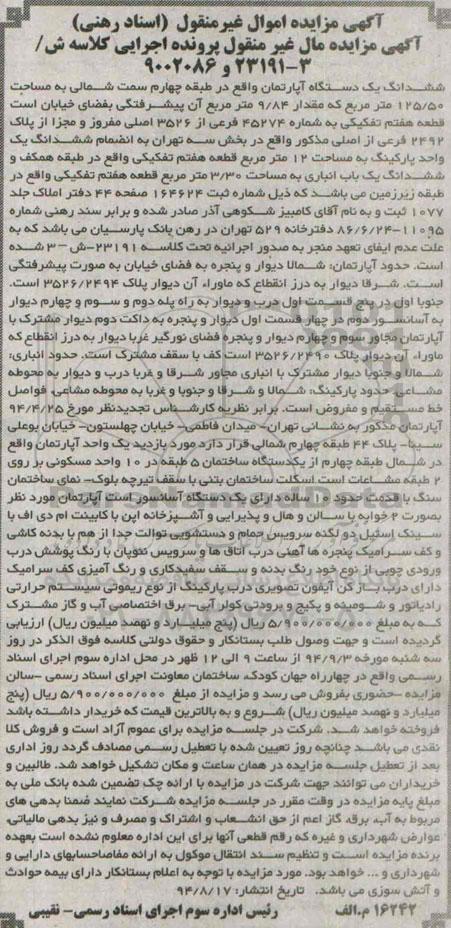 آگهی مزایده اموال غیرمنقول (اسناد رهنی)
آگهی مزایده مال غیر منقول پرونده اجرایی کلاسه ش/
۲۳۱۹۱-۳ و ۹۰۰۲۰۸۶
ششدانگ یک دستگاه آپارتمان واقع در طبقه چهارم سمت شمالی به مساحت
۱۲۵/۵۰ متر مربع که مقدار ۹/۸۴ متر مربع آن پیشرفتگی بفضای خیابان است
قطعه هفتم تفکیکی به شماره ۴۵۲۷۴ فرعی از ۳۵۲۶ اصلی مفروز و مجزا از پلاک
۲۴۹۲ فرعی از اصلی مذکور واقع در بخش سه تهران به انضمام ششدانگ یک
واحد پارکینگ به مساحت ۱۲ متر مربع قطعه هفتم تفکیکی واقع در طبقه همکف و
ششدانگ یک باب انباری به مساحت ۳/۳۰ متر مربع قطعه هفتم تفکیکی واقع در
طبقه زیرزمین می باشد که ذیل شماره ثبت ۱۶۴۶۲۴ صفحه ۴۴ دفتر املاک جلد
۱۰۷۷ ثبت و به نام آقای کامبیز شکوهی آذر صادر شده و برابر سند رهنی شماره
۱۱۰۹۵-۸۶/۶/۲۴ دفترخانه ۵۲۹ تهران در رهن بانک پارسیان می باشد که به
علت عدم ایفای تعهد منجر به صدور اجرائیه تحت کلاسه ۲۳۱۹۱-ش-۳ شده
است. حدود آپارتمان: شمالا دیوار و پنجره به فضای خیابان به صورت پیشرفتگی
است. شرقا دیوار به درز انقطاع که ماوراء آن دیوار پلاک ۳۵۲۶/۲۴۹۴ است.
جنوبا اول در پنج قسمت اول درب و دیوار به راه پله دوم و سوم و چهارم دیوار
به آسانسور دوم در چهار قسمت اول دیوار و پنجره به داکت دوم دیوار مشترک با
آپارتمان مجاور سوم و چهارم دیوار و پنجره فضای نورگیر غربا دیوار به درز انقطاع که
ماوراء آن دیوار پلاک ۳۵۲۶/۲۴۹۰ است کف با سقف مشترک است. حدود انباری:
شمالا و جنوبا دیوار مشترک با انباری مجاور شرقا و غربا درب و دیوار به محوطه
مشاعی. حدود پارکینگ: شمالا و شرقا و جنوبا و غربا به محوطه مشاعی. فواصل
خط مستقیم و مفروض است. برابر نظریه کارشناس تجدیدنظر مورخ ۹۴/۴/۲۵
آپارتمان مذکور به نشانی تهران- میدان فاطمی- خیابان چهلستون- خیابان بوعلی
سینا- پلاک ۴۴ طبقه چهارم شمالی قرار دارد مورد بازدید یک واحد آپارتمان واقع
در شمال طبقه چهارم از یکدستگاه ساختمان ۵ طبقه در ۱۰ واحد مسکونی بر روی
۲ طبقه مشاعات است اسکلت ساختمان بتنی با سقف تیرچه بلوک- نمای ساختمان
سنگ با قدمت حدود ۱۰ ساله دارای یک دستگاه آسانسور است آپارتمان مورد نظر
بصورت ۲ خوابه با سالن و هال و پذیرایی و آشپزخانه اپن با کابینت ام دی اف با
سینک استیل دو لگنه سرویس حمام و دستشویی توالت جدا از هم با بدنه کاشی
و کف سرامیک پنجره ها آهنی درب اتاق ها و سرویس نئوپان با رنگ پوشش درب
ورودی چوبی از نوع خود رنگ بدنه و سقف سفیدکاری و رنگ آمیزی کف سرامیک
دارای درب باز کن آیفون تصویری درب پارکینگ از نوع ریموتی سیستم حرارتی
رادیاتور و شومینه و پکیج و برودتی کولر آبی- برق اختصاصی آب و گاز مشترک
که به مبلغ ۵/۹۰۰/۰۰۰/۰۰۰ ریال (پنج میلیارد و نهصد میلیون ریال) ارزیابی
گردیده است و جهت وصول طلب بستانکار و حقوق دولتی کلاسه فوق الذکر در روز
سه شنبه مورخه ۹۴/۹/۳ از ساعت ۹ الی ۱۲ ظهر در محل اداره سوم اجرای اسناد
رسمی واقع در چهارراه جهان کودک، ساختمان معاونت اجرای اسناد رسمی -سالن
مزایده -حضوری بفروش می رسد و مزایده از مبلغ ۵/۹۰۰/۰۰۰/۰۰۰ ریال (پنج
میلیارد و نهصد میلیون ریال) شروع و به بالاترین قیمت که خریدار داشته باشد
فروخته خواهد شد. شرکت در جلسه مزایده برای عموم آزاد است و فروش کلا
نقدی می باشد چنانچه روز تعیین شده با تعطیل رسمی مصادف گردد روز اداری
بعد از تعطیل جلسه مزایده در همان ساعت و مکان تشکیل خواهد شد. طالبین و
خریداران می توانند جهت شرکت در مزایده با ارائه چک تضمین شده بانک ملی به
مبلغ پایه مزایده در وقت مقرر در جلسه مزایده شرکت نمایند ضمنا بدهی های
مربوط به آب، برق، گاز اعم از حق انشعاب و اشتراک و مصرف و نیز بدهی مالیاتی،
عوارض شهرداری و غیره که رقم قطعی آنها برای این اداره معلوم نشده است بعهده
برنده مزایده است و تنظیم سند انتقال موکول به ارائه مفاصاحسابهای دارایی و
شهرداری و ... خواهد بود. مورد مزایده با توجه به اعلام بستانکار دارای بیمه حوادث
و آتش سوزی می باشد. تاریخ انتشار: ۹۴/۸/۱۷
۱۶۲۴۲ م.الف رئیس اداره سوم اجرای اسناد رسمی- نقیبی